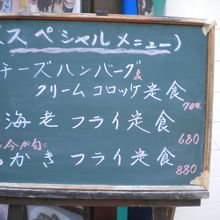 (スペシャルメニュー)
チーズハンバーグ&
クリームコロッケ定食
700
海老フライ定食
680
=今が旬=
かきフライ定食
880